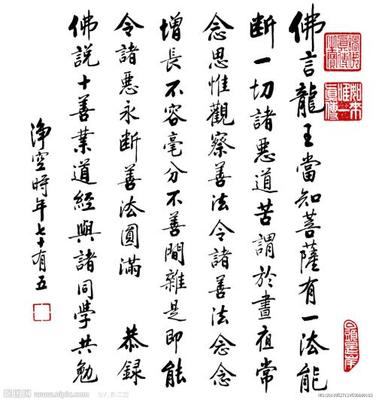 佛言龍王當知菩薩有一法能
断一切諸惡道苦謂於晝夜常
念思惟觀察善法令諸善法念念
增長不容毫分不善間雜是即能
令諸惡永断善法圓滿 恭録
佛説十善業道經與諸同學共勉
淨空時年七十有五
昵图网 www.nipic.com